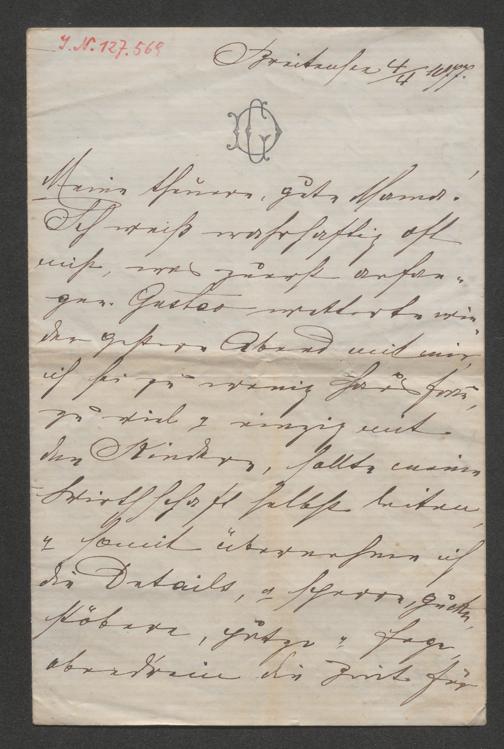 J. N. 127.569
Breitensee 4/4 1877.
Meine theuere, gute Mama!
Ich weiß wahrhaftig oft
nicht, was zuerst anfan-
gen. Gustav wetterte wie-
der gestern Abend mit mir,
ich sei zu wenig Hausfrau,
zu viel & einzig mit
den Kindern, sollte meine
Wirthschaft selbst leiten,
& somit übernehme ich
die Details, & sperre, gucke,
stöbere, & sage
die Zeit für